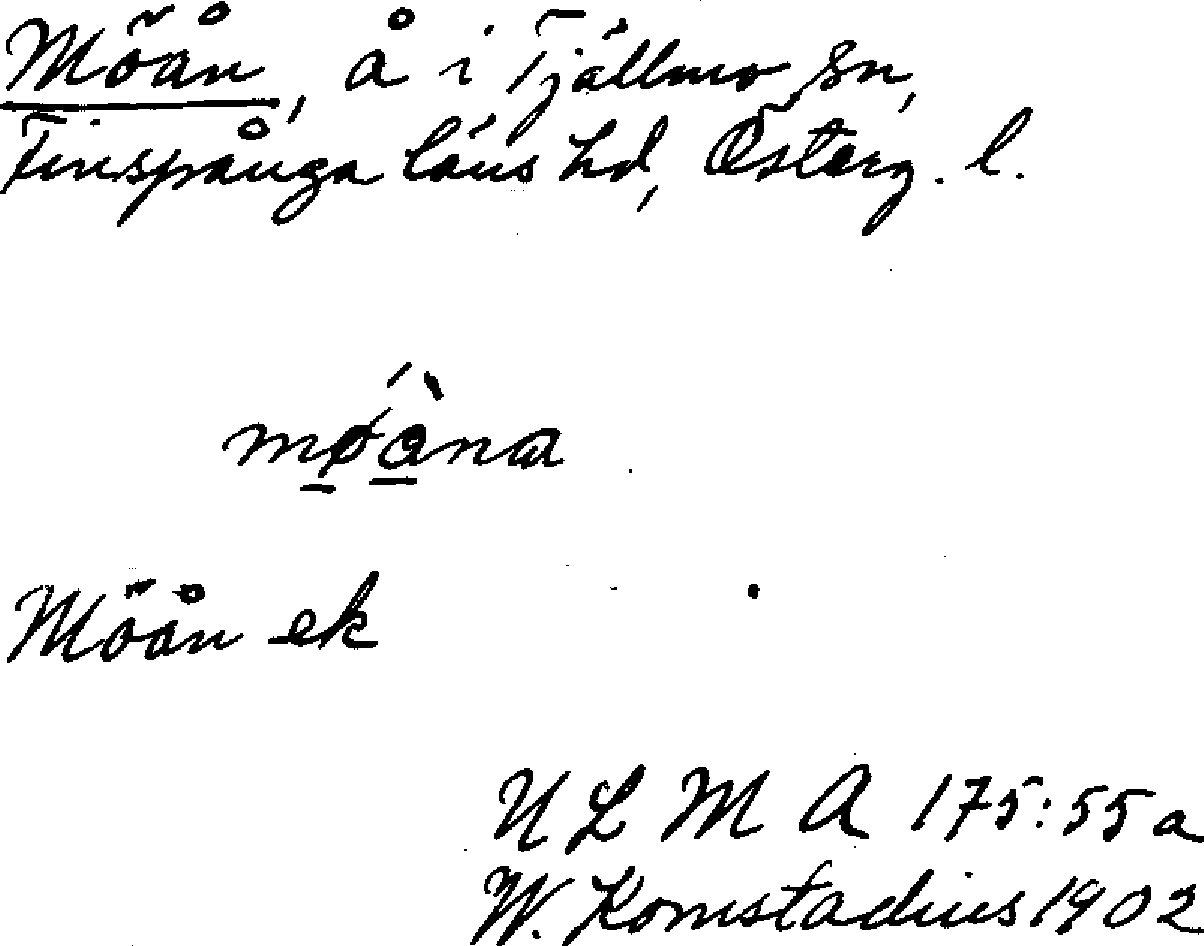 Möån, å i Tjällmo sn,
Finspånga läns hd, Österg. l.
mǿ̱å̱̀na
Möån ek
U L M A 175:55a
W. Komstadius 1902